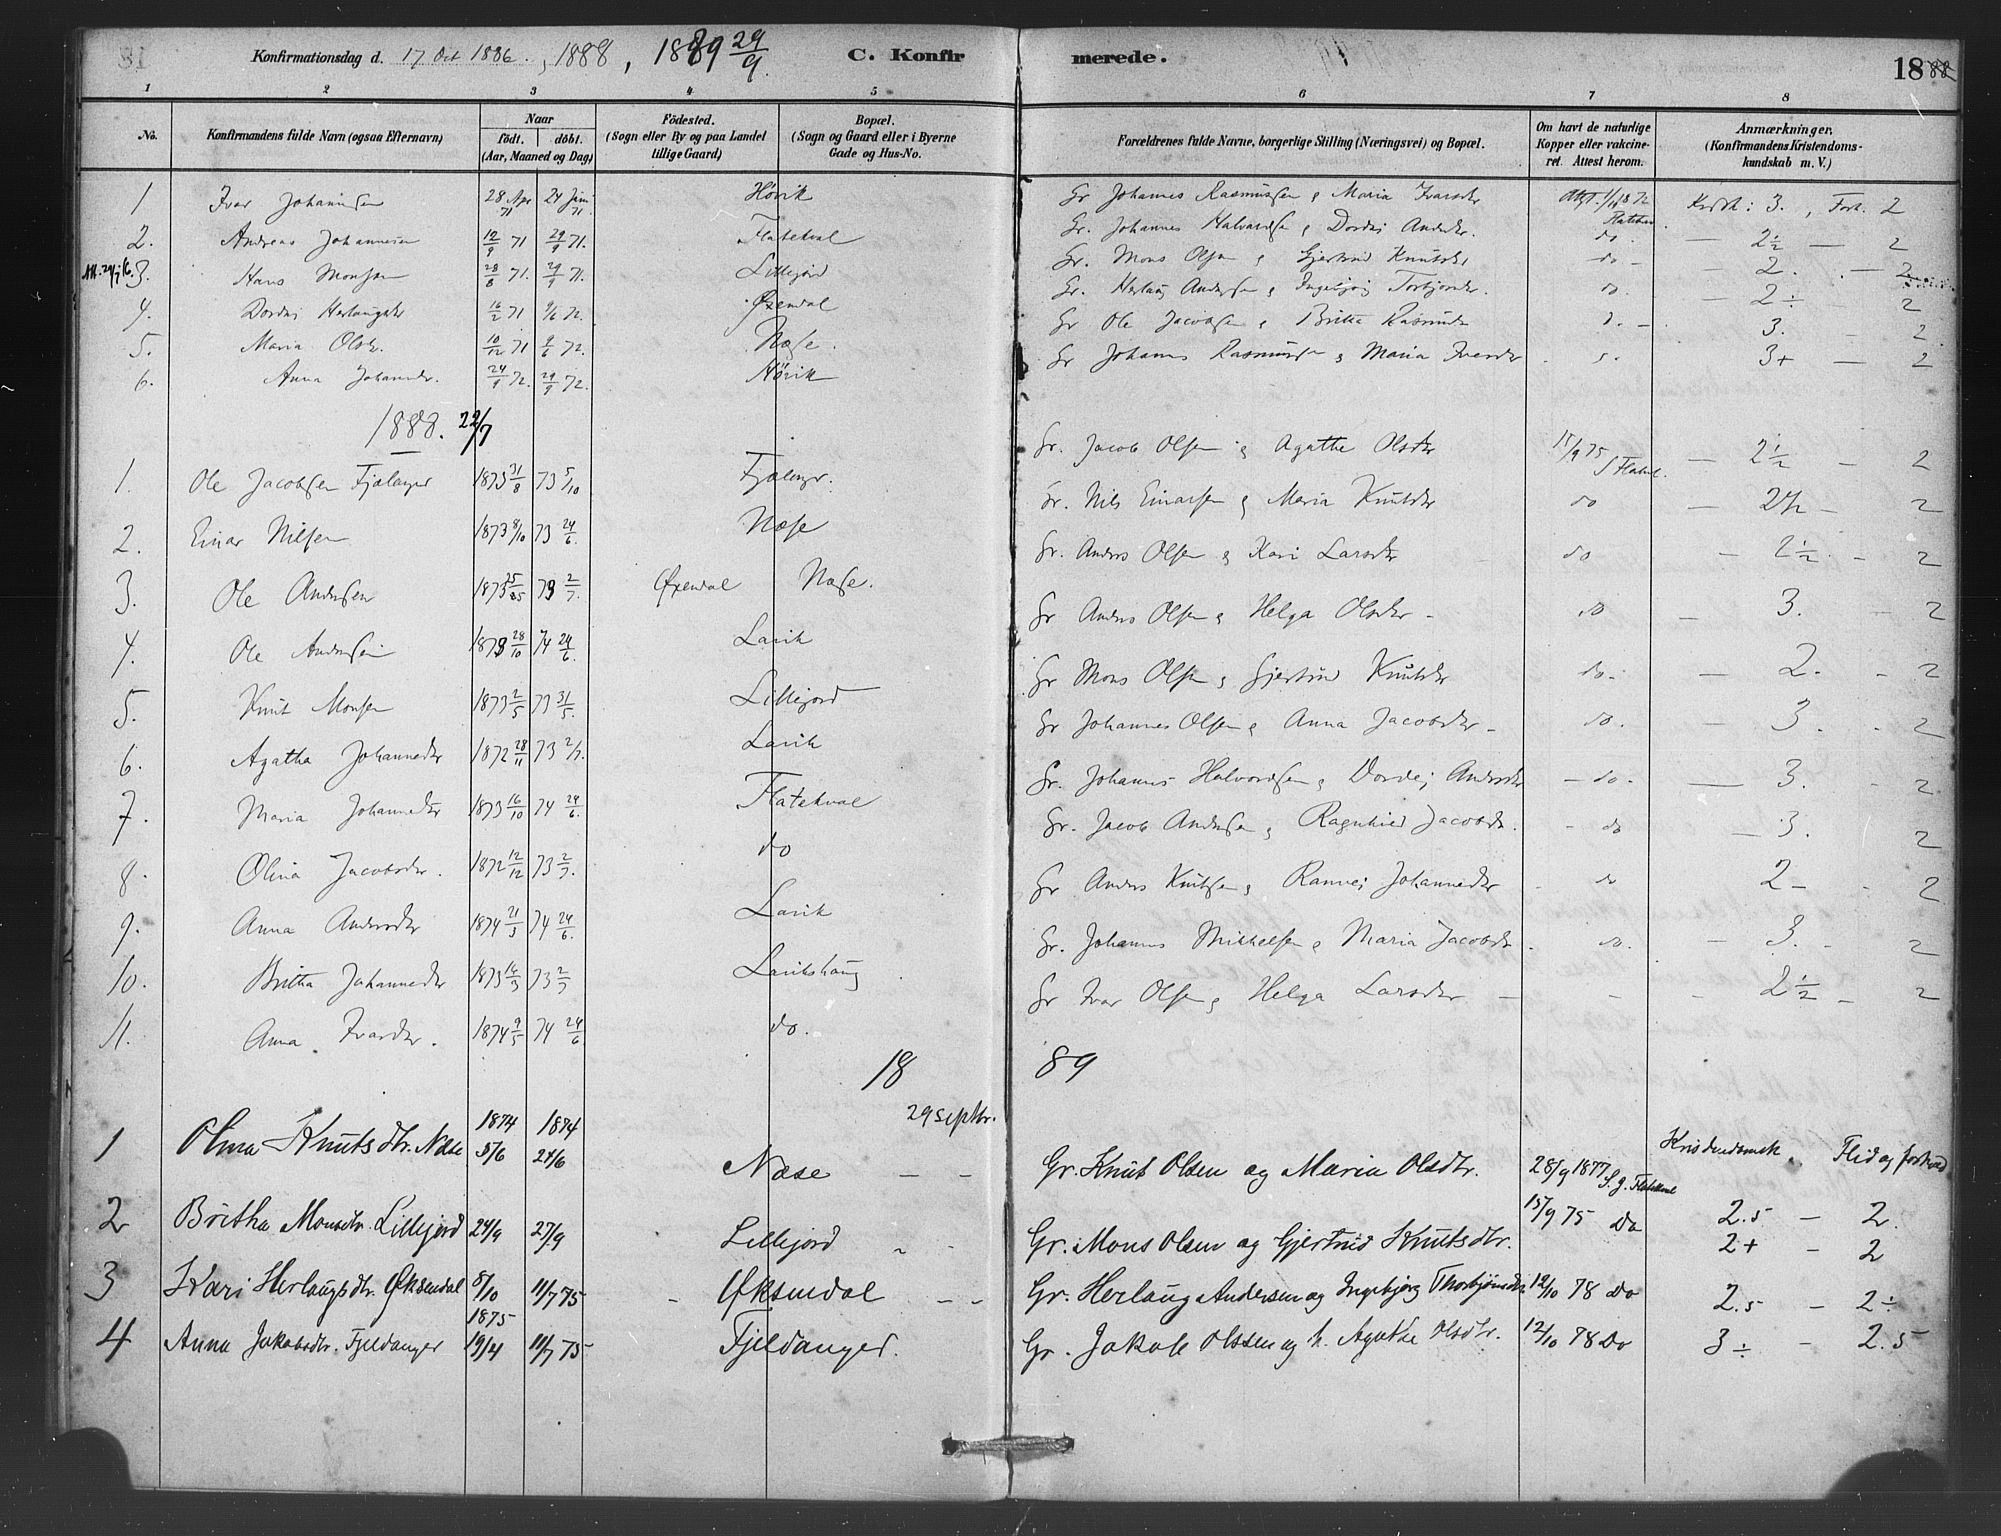 Konfirmationsdag d. 17 Oct 1886, 1888, 1889 29/9. C. Konfirmerede. 1888
1 2 3 4 5 6 7 8
No. Konfirmandens fulde Navn (ogsaa Efternavn) Naar født. døbt. (Aar, Maaned og Dag) Fødested. (Sogn eller By og paa Landet tillige Gaard) Bopæl. (Sogn og Gaard eller i Byerne Gade og Hus-No. Forældrenes fulde Navne, borgerlige Stilling (Næringsvei) og Bopæl. Om havt de naturlige Kopper eller vakcineret. Attest herom. Anmærkninger. (Konfirmandens Kristendomskundskab m. V.)
1 Ivar Johannesen 28 Apr 71 24 Juni 71. Hørik Gr Johannes Rasmussen & Maria Ivarsdtr 3. 2
2. Andreas Johannesen 12/9 71 29/9 71. Flatekval Gr. Johannes Halvardsen & Dordei Andersdr. do. — 2½ — 2
3. Hans Monsen 28/8 71. 29/9 71. Lillejord Gr. Mons Olsen & Gjertrud Knutsdtr do - — 2. — 2
4. Dordei Herlaugsdtr 16/2 71 9/6 72. Øxendal Gr. Herlaug Andersen & Ingebjørg Torbjørnsdr. do. — 2÷ — 2
5. Maria Olsdtr. 10/12 71 9/6 72. Næse. Gr Ole Jacobsen & Britha Rasmusdr d. — 3. — 2
6. Anna Johannesdr. 24/9 72. 29/9 72. Hørik Gr Johannes Rasmussen & Maria Ivarsdtr 3+ — 2
1888. 22/7
1. Ole Jacobsen Fjelanger 1873 31/8 73 5/10 Fjelanger. Gr. Jacob Olsen & Agatha Olsdtr 15/9 75 — 2½ — 2
2. Einar Nilsen 1873 8/10 73 24/6. Næse Gr. Nils Einarsen & Maria Knutsdtr do — 2½ — 2
3. Ole Andersen 73 2/7. Øxendal Næse. Gr. Anders Olsen & Kari Larsdtr do — 2½. — 2
4. Ole Andersen 1873 28/10 74 24/6. Lavik Gr Anders Olsen & Helga Olsdtr — do — 3. - 2
5. Knut Monsen 1873 2/5 73 31/5. Lillejord Gr Mons Olsen & Gjertrud Knutsdtr do — 2. - 2
6. Agatha Johannesdtr 1872 28/11 73 2/7. Lavik Gr Johannes Olsen & Anna Jacobsdtr — do. — 3. - 2
7. Maria Johannesdtr 1873 16/10 74 24/6. Flatekval Gr. Johannes Halvardsen & Dordei Andersdtr — do. — 3. - 2
8. Olina Jacobsdtr. 1872 12/12 73 2/7. do Gr. Jacob Andersen & Ragnhild Jacobsdr. - do — 3. 2
9. Anna Andersdtr 1874 21/3 74 24/6. Lavik Gr Anders Knutsen & Rannei Johannesdtr - do 2 — 2
10. Britha Johannesdtr 73 2/7 Lavikshaug Gr. Johannes Mikkelsen & Maria Jacobsdr. do. — 3. - 2
11. Anna Ivarsdtr. 1874 9/5 74 24/6 do. Gr Ivar Olsen & Helga Larsdtr — - - 2½ — 2
18 89
29 septbr.
1 Olina Knutsdtr. Næse 1874 5/6 1874 24/6 Næse — — Gr. Knut Olsen og Maria Olsdtr. 28/9 1877 Kristendomsk. Flid og forhold
2 Britha Monsdtr. Lillejord 24/9 27/9 Lillejord " - Gr. Mons Olsen og Gjertrud Knutsdtr. 15/9 75 Do 2.5 — 2.
2+ - 2
3 Kari Herlaugsdtr. Øksendal 8/10 11/7 75 - Øksendal - - Gr. Herlaug Andersen og Ingebjørg Thorbjørnsdtr 12/10 78 Do 2.5 — 2÷
4 Anna Jakobsdtr. Fjeldanger 1875 19/4 11/7 75 Fjeldanger. Gr. Jakob Olssen og h. Agathe Olsdtr. 12/10 78 Do 3÷ - 2.5